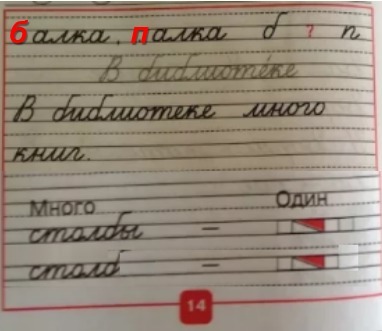 балка, палка б ? п
В библиоте́ке
В библиотеке много
книг.
Много Один
столбы –
столб –
14